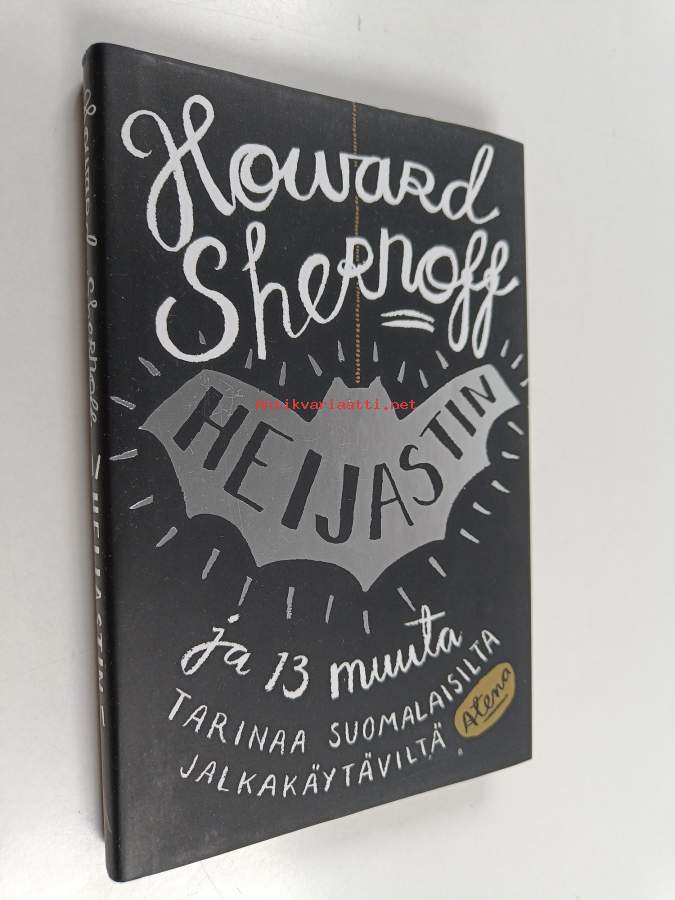 Howard
Shernoff
HEIJASTIN
antikvariaatti.net
ja 13 muuta
TARINAA SUOMALAISILTA
JALKAKÄYTÄVILTÄ
Atena
Howard Shernoff HEIJASTIN